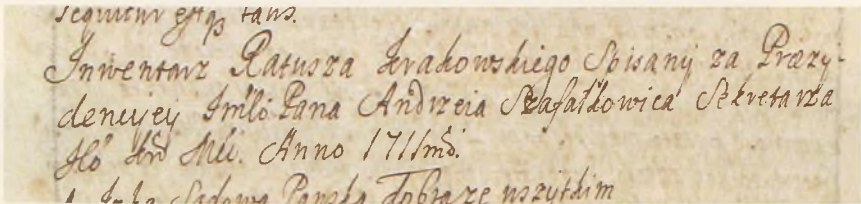 sequitur estq talis.
Inwentarz Ratusza Krakowskiego Spisany za Præzy-
dencyjey Jmści Pana Andrzeia Szafatkowica Sekretarza
Anno 1711mo.
1. Izba Sądowa Pańska Dobra ze wszytkim